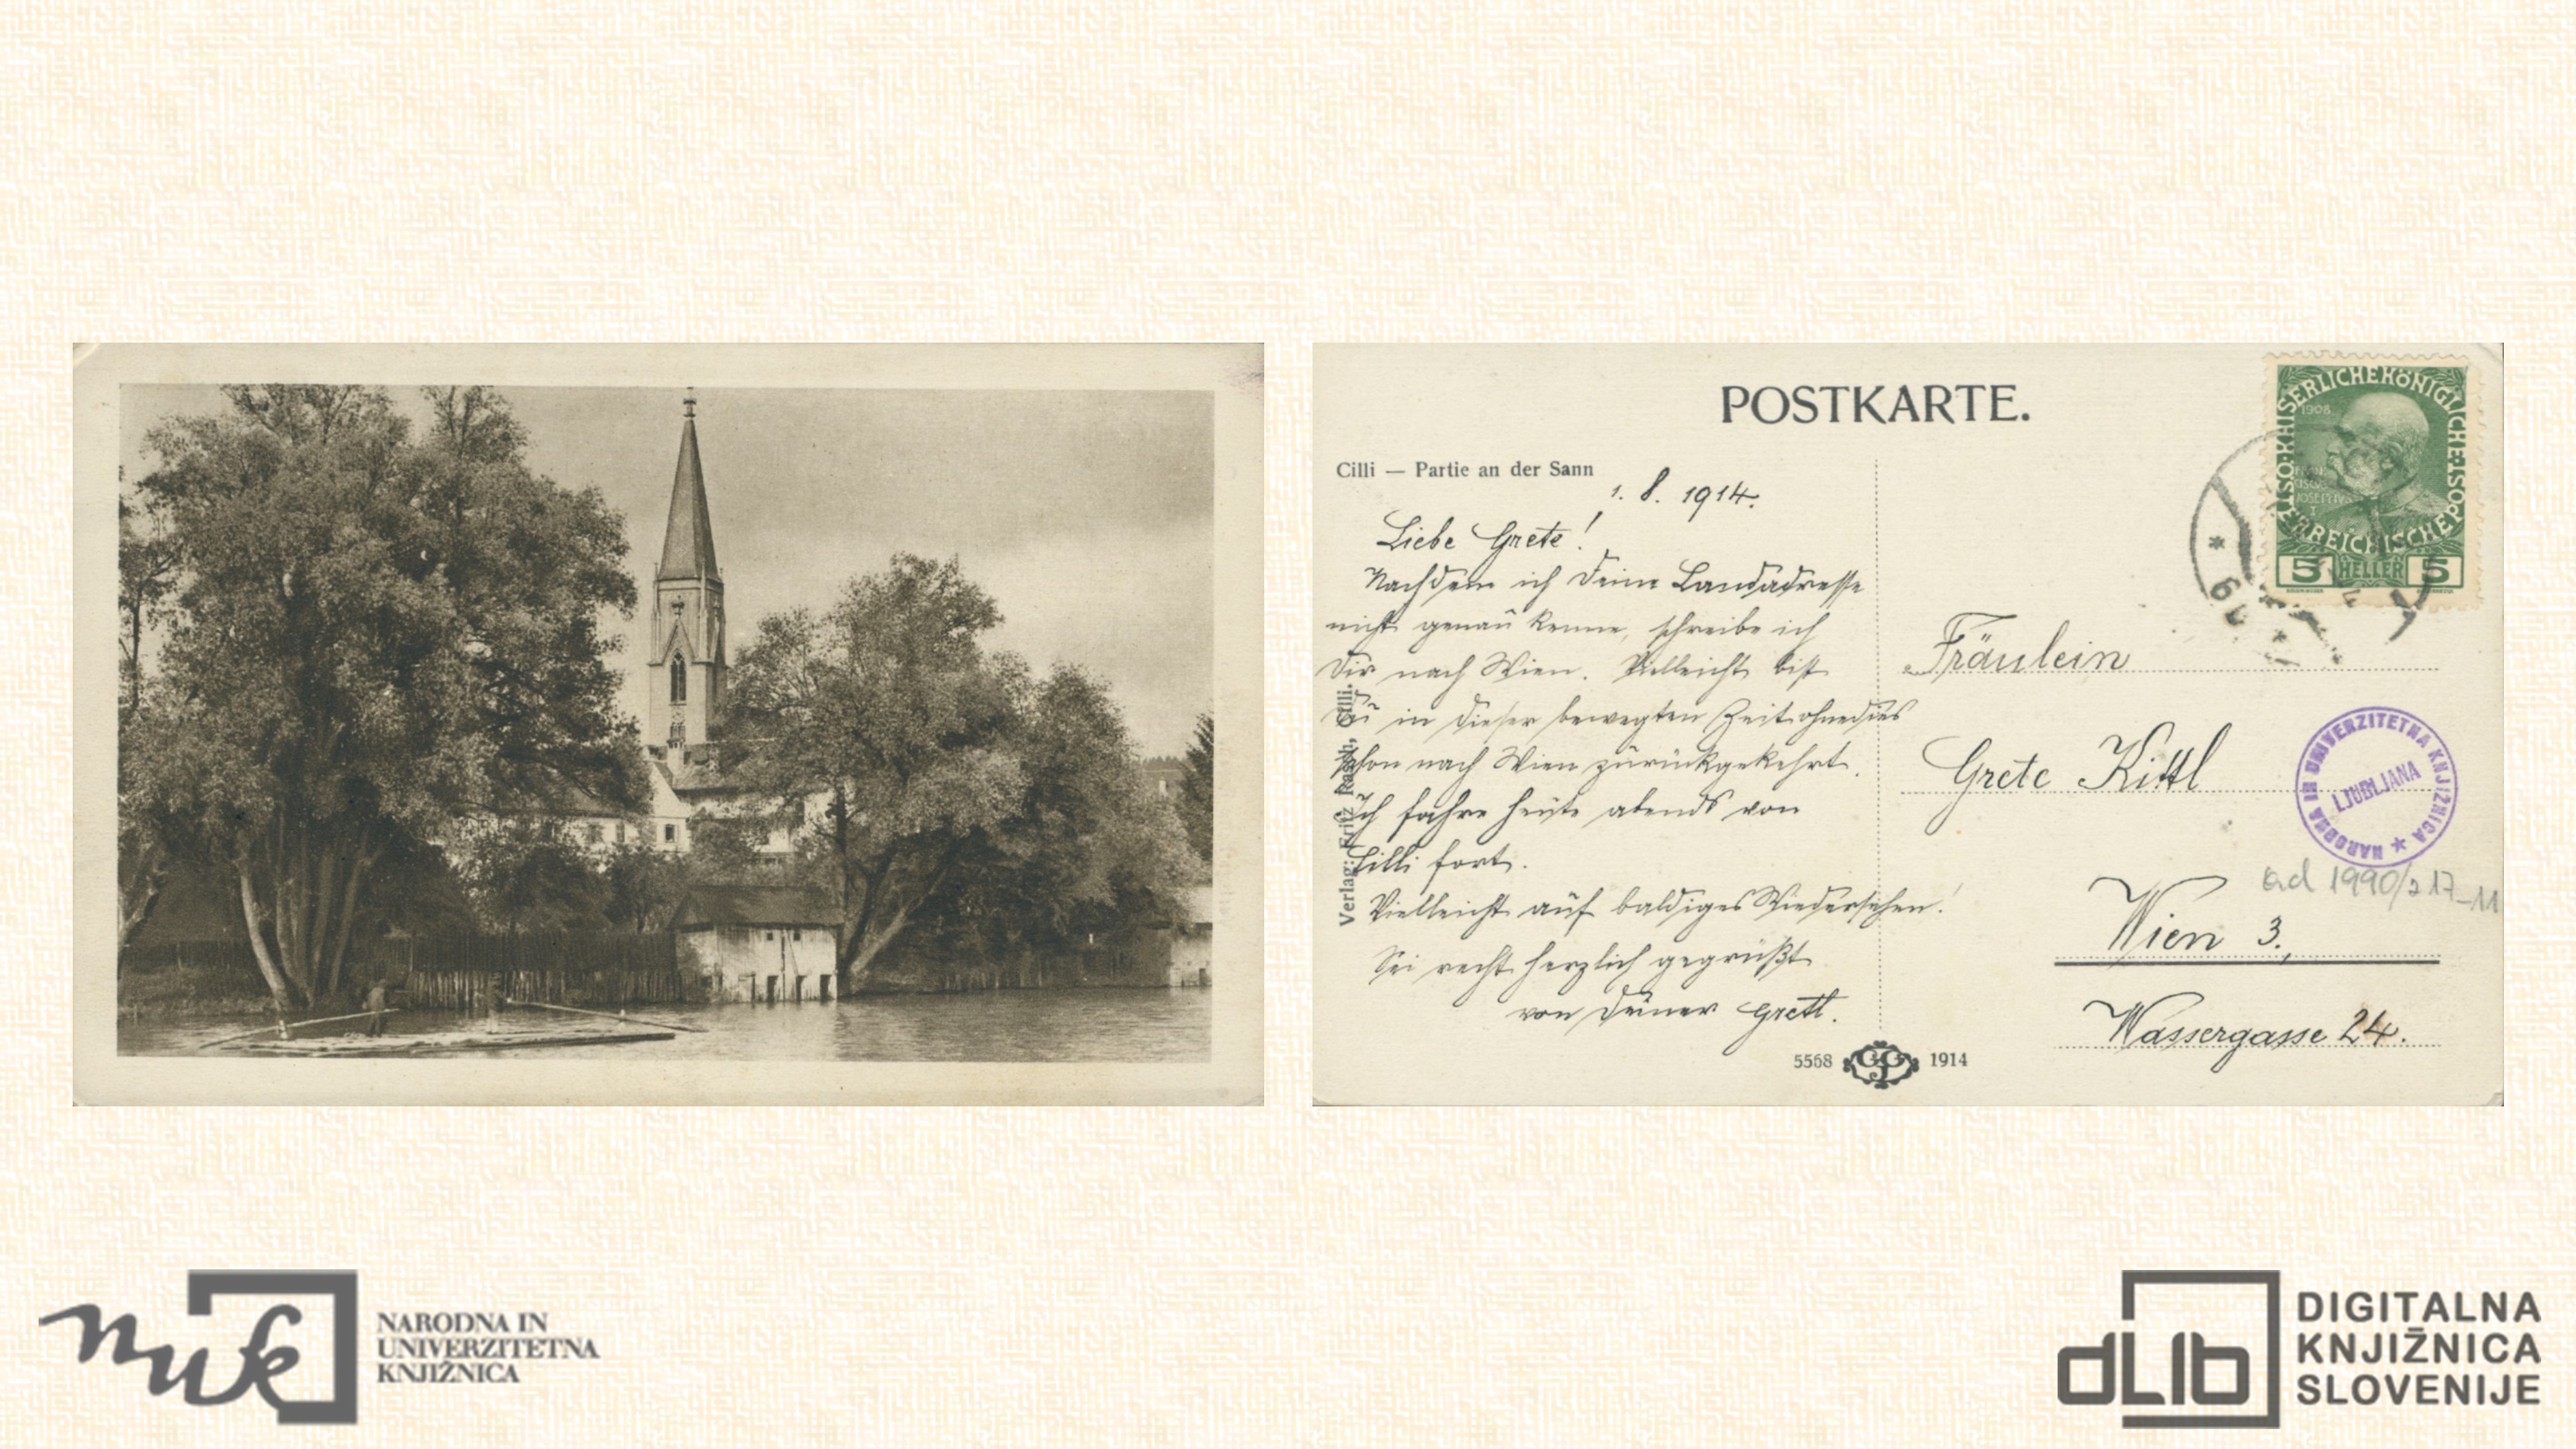 POSTKARTE.
Cilli — Partie an der Sann
1. 8. 1914.
Liebe Grete!
Nachdem ich Deine Landadresse
nicht genau kenne, schreibe ich
Dir nach Wien. Vielleicht bist
Du in dieser bewegten Zeit ohnedies
schon nach Wien zurückgekehrt.
Ich fahre heute abends von
Cilli fort.
Vielleicht auf baldiges Wiedersehen!
Sei recht herzlich gegrüßt
von Deiner Gretl.
Verlag: Fritz Rasch, Cilli.
5568 1914
KAISERLICHE KÖNIGLICHE ÖSTERREICHISCHE POST
1908
5 HELLER 5
Fräulein
Grete Kittl
Wien 3.,
Wassergasse 24.
NARODNA IN UNIVERZITETNA KNJIŽNICA
LJUBLJANA
ad 1990/217-11
nuk
NARODNA IN
UNIVERZITETNA
KNJIŽNICA
dLib
DIGITALNA
KNJIŽNICA
SLOVENIJE